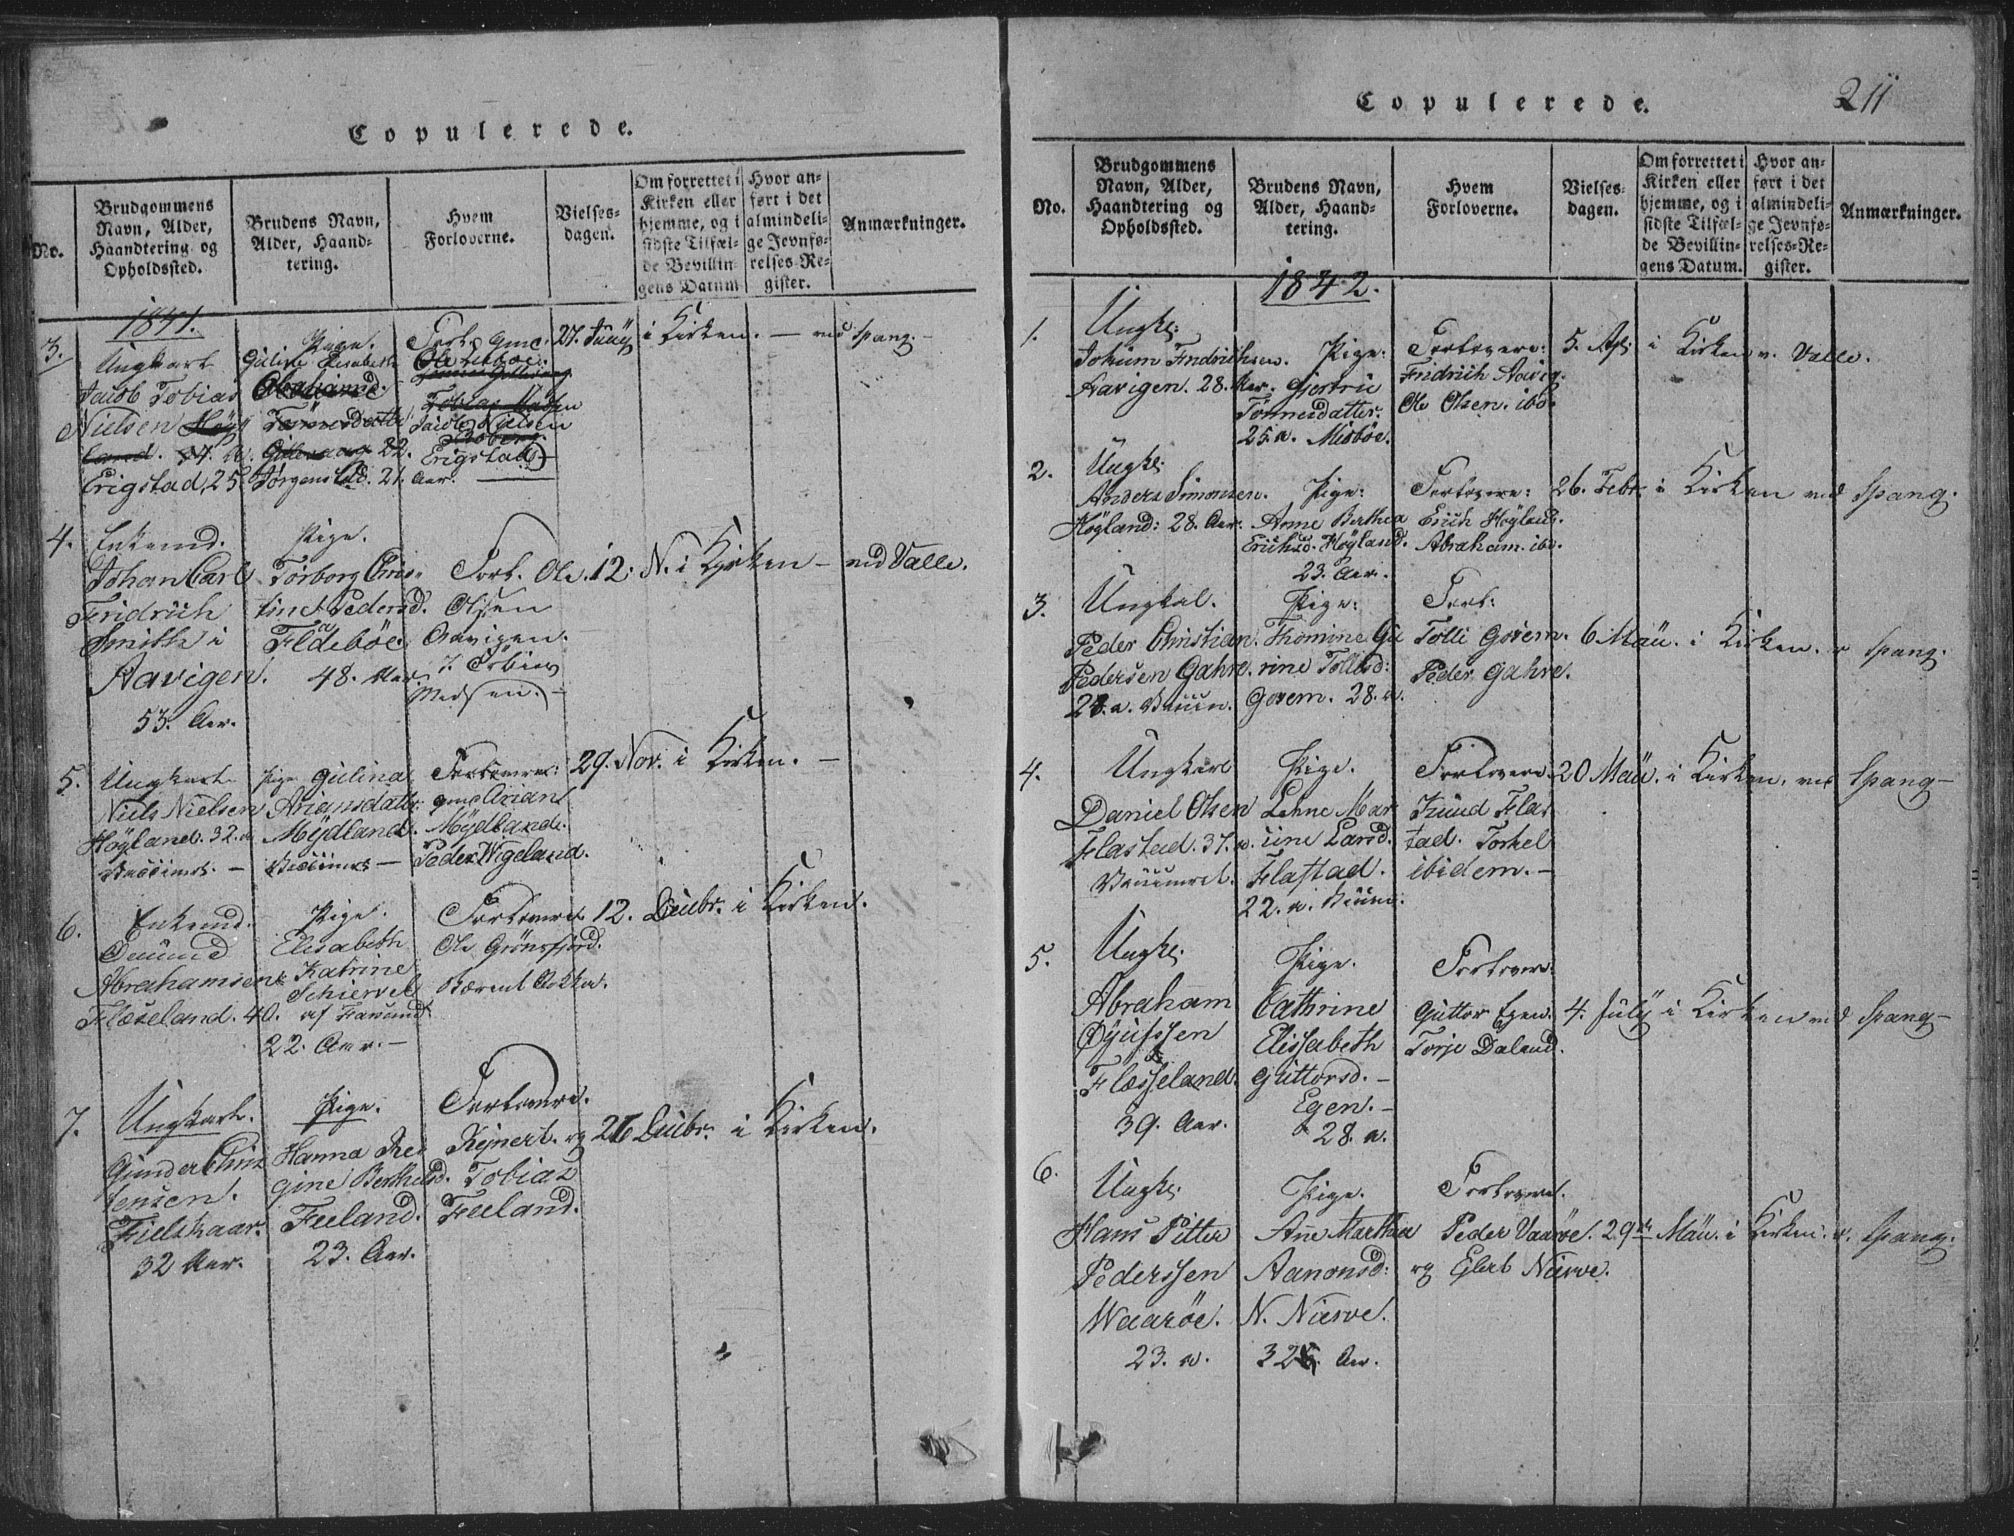 Copulerede.
No.
Brudgommens
Navn, Alder,
Haandtering og
Opholdssted.
Brudens Navn,
Alder, Haand-
tering.
Hvem
Forloverne.
Vielses-
dagen.
Om forrettet i
Kirken eller
hjemme, og i
sidste Tilfæl-
de Bevillin-
gens Datum
Hvor an-
ført i det
almindeli-
ge Jevnfø-
relses-Re-
gister.
Anmærkninger.
1841.
3.
Ungkarl
Jacob Tobias
Nielsen
Erigstad, 25.
Pige.
Elisabeth
22.
Jørgensd. 21. Aar.
Forl.
Jacob Nielsen
Erigstad
27. Juny
i Kirken. — ved Spang. —
4.
Enkemd.
Johan Carl
Fridrich
Smith i
Aavigen.
53. Aar.
Pige.
Torborg Chris-
tine Pedersd.
Fldebøe
48. Aar.
Forl. Ole
Olsen
Aavigen.
Tobias
Madsen. —
12. N. i Kirken — ved Valle.
5.
Ungkarl
Niels Nielsen
Høyland. 32. a
Pige Gulina
Ariansdatter
Mydland.
Forlovere:
Arian
Mydland.
Peder Vigeland.
29. Nov. i Kirken. —
6.
Enkemd.
Omund
Abrahamsen
Flæseland. 40.
Pige.
Elisabeth
Katrine
Schiervel
af Farsund.
22. Aar. —
Forlovere
Ole Grønsfjord.
Berent Aokka.
12. Decbr. i Kirken.
7.
Ungkarl.
Gunder Chris
tensen.
Fielskaar.
32 Aar.
Pige.
Hanna Re
gine Berthelsd.
Feeland.
23. Aar.
Forlovere.
Rejnert. og
Tobias
Feeland.
26 Decbr. i Kirken.
Copulerede.
211
No.
Brudgommens
Navn, Alder,
Haandtering og
Opholdssted.
Brudens Navn,
Alder, Haand-
tering.
Hvem
Forloverne.
Vielses-
dagen.
Om forrettet i
Kirken eller
hjemme, og i
sidste Tilfæl-
de Bevillin-
gens Datum.
Hvor an-
ført i det
almindeli-
ge Jevnfø-
relses-Re-
gister.
Anmærkninger.
1842.
1.
Ungk:
Johum Fredrichsen.
Aavigen. 28. Aar.
Pige:
Gjertrie
Tønnesdatter.
25. a. Misbøe.
Forlovere:
Fredrich Aavig.
Ole Olsen. ibd.
5. Apl. i Kirken v. Valle.
2.
Ungk:
Anders Simonsen.
Høyland: 28. Aar.
Pige:
Anne Berthea
Erichsd. Høyland.
23. Aar.
Forlovere:
Erich Høyland.
Abraham. ibd.
26. Febr. i Kirken ved Spang.
3.
Ungkal.
Peder Christian.
Pedersen Gahre.
Pige:
Thomine Gu
rine Tollisd:
Gosem. 28. a.
Forl:
Tolli Gosem.
Peder Gahre.
6 Mai. i Kirken. v Spang.
4.
Ungkarl
Daniel Olsen
Flastad. 37. a.
Pige.
Lehne Mar
Larsd.
Flastad.
22. a.
Forlovere
Flas
tad. Torkel
ibidem. —
20 Mai. i Kirken, ved Spang —
5.
Ungk:
Abraham
Flæsseland.
39. Aar.
Pige.
Cathrine
Elissabeth
Guttorsd. —
Egen. —
28. a.
Forlovere
Guttor Egen.
Torje Daland.
4. July i Kirken ved Spang —
6.
Ungk:
Hans Pitter
Pederssen
Waarøe.
23. a.
Pige.
Ane Marthea
Aanonsd:
N. Narve.
Aar.
Forlovere.
Peder Vaarøe.
og Eilert Narve.
29de Mai. i Kirken. v. Spang.